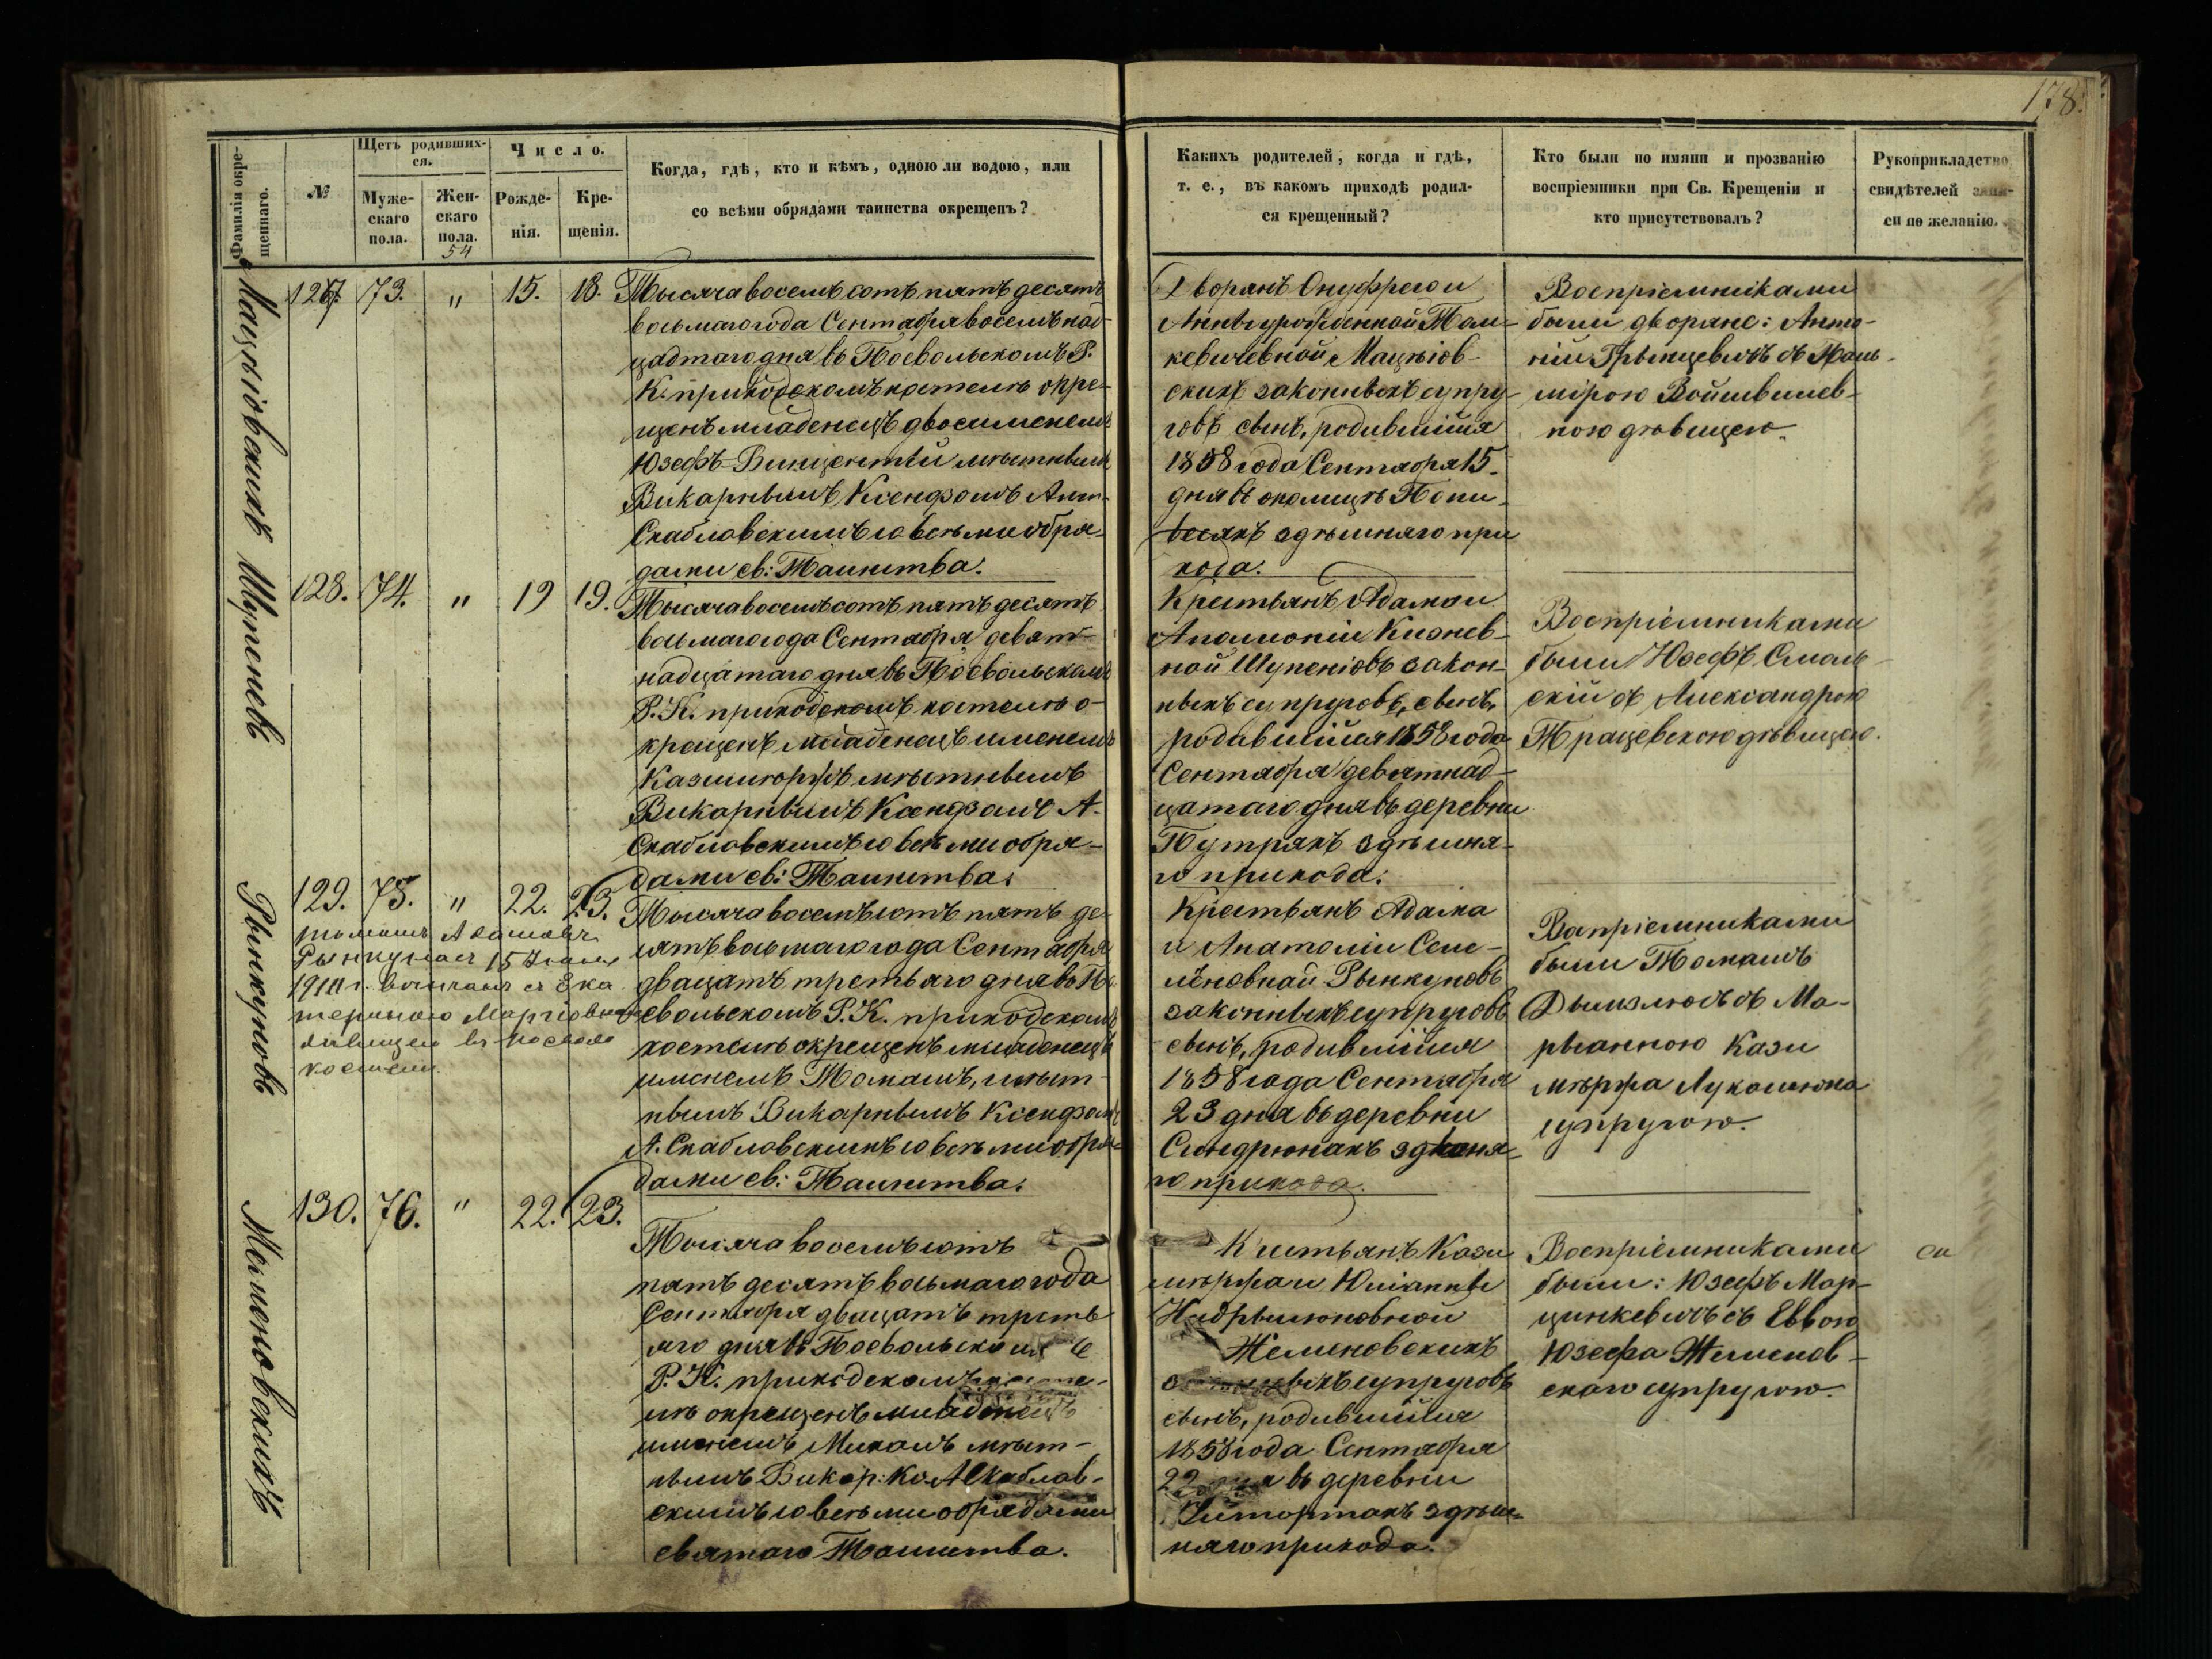 178.
Фамилія окре-
щеннаго.
№
Щетъ родивших-
ся.
Муже-
скаго
пола.
Жен-
скаго
пола.
54
Число.
Рожде-
нія.
Кре-
щенія.
Когда, гдѣ, кто и кѣмъ, одною ли водою, или
со всѣми обрядами таинства окрещенъ?
Какихъ родителей, когда и гдѣ,
т. е., въ какомъ приходѣ родил-
ся крещенный?
Кто были по имяни и прозванію
воспріемники при Св. Крещеніи и
кто присутствовалъ?
Рукоприкладство
свидѣтелей
си по желанію.
127. 73. " 15. 18.
Тысяча восемъ сотъ пятъ десятъ
восьмаго года Сентября восемънад-
цадтаго дня въ Посвольскомъ Р.
К. приходскомъ костелѣ окре-
щенъ младенецъ двоеименемъ
Юзефъ-Винцентій мѣстнымъ
Викарнымъ Ксендзомъ Ант.
Скабловскимъ со всѣми обря-
дами св: Таинства.
Дворянъ Онуфрего и
Анны урожденной Том-
кевичевной Мацѣіов-
скихъ законныхъ супру-
говъ сынъ, родившійся
1858 года Сентября 15
дня въ околицѣ Попи-
весяхъ здѣшняго при
хода.
Воспріемниками
были дворяне: Анто-
ній Грынцевичъ съ
Войшвилев-
ною дѣвицею.
Шупеновъ
128. 74. " 19 19.
Тысяча восемъ сотъ пятъ десятъ
восьмаго года Сентября девят-
надцатаго дня въ Посвольскомъ
Р. К. приходскомъ костелѣ о-
крещенъ младенецъ именемъ
Казимѣржъ мѣстнымъ
Викарнымъ Ксендзомъ А.
Скабловскимъ со всѣми обря-
дами св: Таинства.
Крестьянъ Адама и
Аполоніи Кизнев-
ной Шупеніовъ закон-
ныхъ супруговъ, сынъ,
родившійся 1858 года
Сентября девятнад-
цатаго дня въ деревни
Путряхъ здѣшня-
го прихода.
Воспріемниками
были Юзефъ Смоль-
скій съ Александрою
Трацевскою дѣвицою.
Рынкуновъ
129. 75. " 22. 23.
Томашъ Адамовъ
Рынкунасъ 15 Іюня
1910 г. вѣнчанъ съ Ека
териною
дѣвицею въ Посволь
костели
Тысяча восемъ сотъ пятъ де-
сятъ восьмаго года Сентября
двацатъ третьяго дня въ По
свольскомъ Р. К. приходскомъ
костелѣ окрещенъ младенецъ
именемъ Томашъ, мѣст-
нымъ Викарнымъ Ксендзомъ
А. Скабловскимъ со всѣми обря-
дами св: Таинства.
Крестьянъ Адама
и Анатоліи Семе-
леновной Рынкуновъ
законныхъ супруговъ
сынъ, родившійся
1858 года Сентября
23 дня въ деревни
Синдрюнахъ здѣшня-
го прихода.
Воспріемниками
были Томашъ
съ Ма-
рыанною Кази
мѣржа Лукошюна
супругою.
130. 76. " 22. 23.
Тысяча восемъ сотъ
пятъ десятъ восьмаго года
Сентября двацатъ треть
яго дня въ Посвольскомъ
Р. К. приходскомъ косте-
лѣ окрещенъ младенецъ
именемъ Михалъ мѣст-
нымъ Викар: Кс. А Скаблов-
скимъ со всѣми обрядами
святаго Таинства.
Крестьянъ Кази
мѣржа и Юліанны
Жеменовскихъ
законныхъ супруговъ
сынъ, родившійся
1858 года Сентября
22 дня въ деревни
здѣш-
няго прихода.
Воспріемниками
были: Юзефъ Мар-
цинкевичъ съ Еввою
Юзефа Жеменов-
скаго супругою.